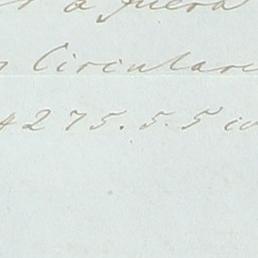 a fuera
Circulare
4275.5.5